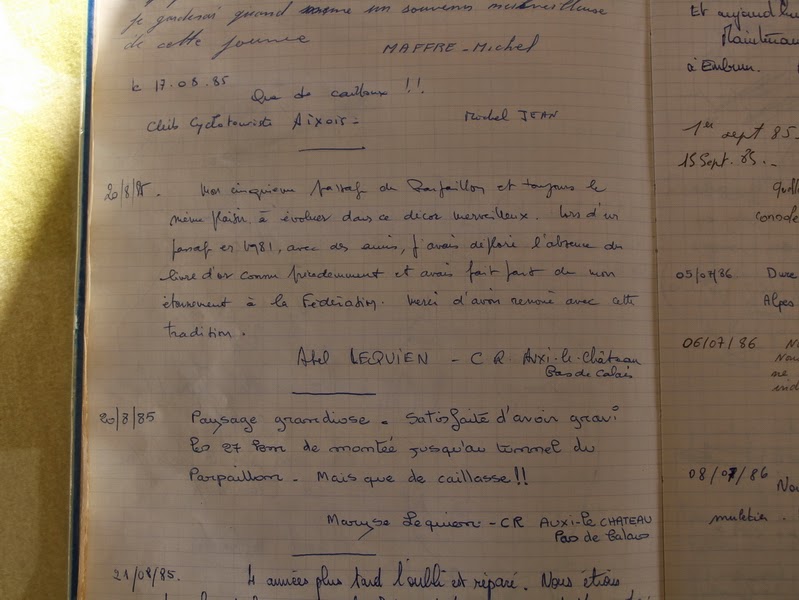 Je garderai quand même un souvenir merveilleux
de cette journée
MAFFRE - Michel
le 17.08.85
Que de cailloux !!
Club Cyclotouriste Aixois -
Michel JEAN
20/8/85. Mon cinquième passage du Parpaillon et toujours le
même plaisir à évoluer dans ce décor merveilleux. Lors d'un
passage en 1981, avec des amis, j'avais déploré l'absence du
livre d'or connu précédemment et avais fait part de mon
étonnement à la Fédération. Merci d'avoir renoué avec cette
tradition.
Abel LEQUIEN - C R AUXI-le-Château
Pas de Calais
20/8/85 Paysage grandiose. Satisfaite d'avoir gravi
les 27 km de montée jusqu'au tunnel du
Parpaillon. Mais que de caillasse !!
Maryse Lequien - CR AUXI-le CHATEAU
Pas de Calais
21/08/85. 4 années plus tard l'oubli est réparé. Nous étions
Et aujourd'hui
Maintenan
à Embrun.
1er sept 85.
15 Sept. 85. -
05/07/86
Alpes
06/07/86
08/07/86
muletier.